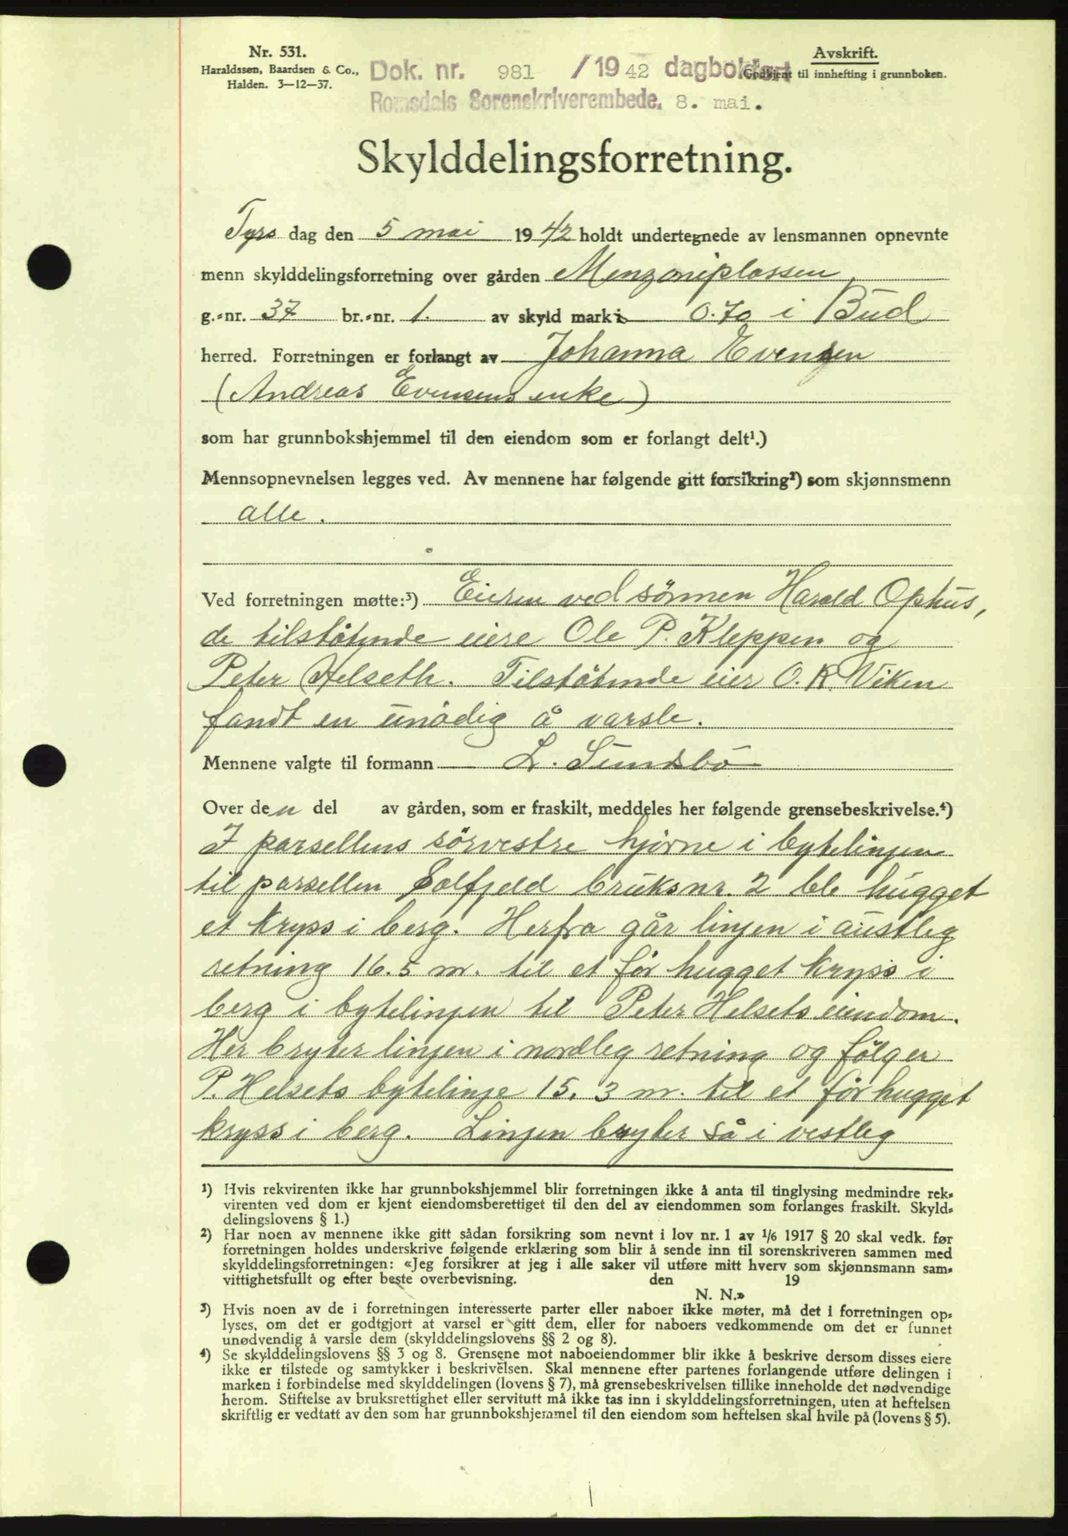 Nr. 531.
Haraldssen, Baardsen & Co.,
Halden. 3—12—37.
Avskrift.
Godkjent til innhefting i grunnboken.
Dok. nr. 981 /1942 dagbokført
Romsdals Sorenskriverembede. 8. mai.
Skylddelingsforretning.
Tyrs dag den 5 mai 1942 holdt undertegnede av lensmannen opnevnte
menn skylddelingsforretning over gården Menzoniplassen
g.-nr. 37 br.-nr. 1. av skyld mark 0.70 i Bud
herred. Forretningen er forlangt av Johanna Evensen
(Andreas Evensens enke)
som har grunnbokshjemmel til den eiendom som er forlangt delt¹.)
Mennsopnevnelsen legges ved. Av mennene har følgende gitt forsikring²) som skjønnsmenn
alle.
Ved forretningen møtte:³) Eieren ved sönnen Harald Ophus,
de tilstötende eiere Ole P. Kleppen og
Peter Helseth. Tilstötende eier O. K. Viken
fandt en unödig å varsle.
Mennene valgte til formann L. Sundsbö
Over den del av gården, som er fraskilt, meddeles her følgende grensebeskrivelse.⁴)
I parsellens sörvestre hjörne i bytelinjen
til parsellen Solfjeld bruksnr. 2 ble hugget
et kryss i berg. Herfra går linjen i austleg
retning 16.5 m. til et för hugget kryss i
berg i bytelinjen til Peter Helsets eiendom.
Her bryter linjen i nordleg retning og fölger
P. Helsets bytelinje 15.3 m. til et för hugget
kryss i berg. Linjen bryter så i vestleg
¹) Hvis rekvirenten ikke har grunnbokshjemmel blir forretningen ikke å anta til tinglysing medmindre rek-
virenten ved dom er kjent eiendomsberettiget til den del av eiendommen som forlanges fraskilt. Skyld-
delingslovens § 1.)
²) Har noen av mennene ikke gitt sådan forsikring som nevnt i lov nr. 1 av 1/6 1917 § 20 skal vedk. før
forretningen holdes underskrive følgende erklæring som blir å sende inn til sorenskriveren sammen med
skylddelingsforretningen: «Jeg forsikrer at jeg i alle saker vil utføre mitt hverv som skjønnsmann sam-
vittighetsfullt og efter beste overbevisning. den 19
N. N.»
³) Hvis noen av de i forretningen interesserte parter eller naboer ikke møter, må det i forretningen op-
lyses, om det er godtgjort at varsel er gitt dem, eller for naboers vedkommende om det er funnet
unødvendig å varsle dem (skylddelingslovens §§ 2 og 8).
⁴) Se skylddelingslovens §§ 3 og 8. Grensene mot naboeiendommer blir ikke å beskrive dersom disses eiere
ikke er tilstede og samtykker i beskrivelsen. Skal mennene efter partenes forlangende utføre delingen i
marken i forbindelse med skylddelingen (lovens § 7), må grensebeskrivelsen tillike inneholde det nødvendige
herom. Stiftelse av bruksrettighet eller servitutt må ikke tas inn i skylddelingsforretningen, uten at heftelsen
skriftlig er vedtatt av den som har grunnbokshjemmel til den eiendom som heftelsen skal hvile på (lovens § 5).